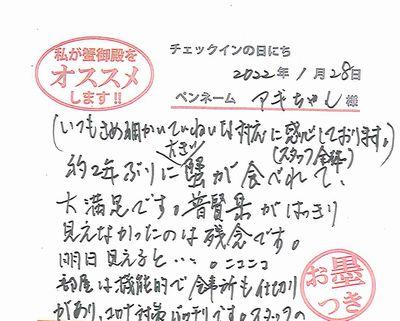 私が蟹御殿を
オススメ
します!!
チェックインの日にち
2022年 1月 28日
ペンネーム アキちゃん 様
(いつもきめ細かいていねいな対応に感心しております。)
(スタッフ全員)
大きい
約2年ぶりに蟹が食べれて、
大満足です。普賢岳がはっきり
見えなかったのは残念です。
明日見えると…。ニコニコ
部屋は機能的で食事所も仕切り
があり、コロナ対策バッチリです。スタッフの
お墨
つき